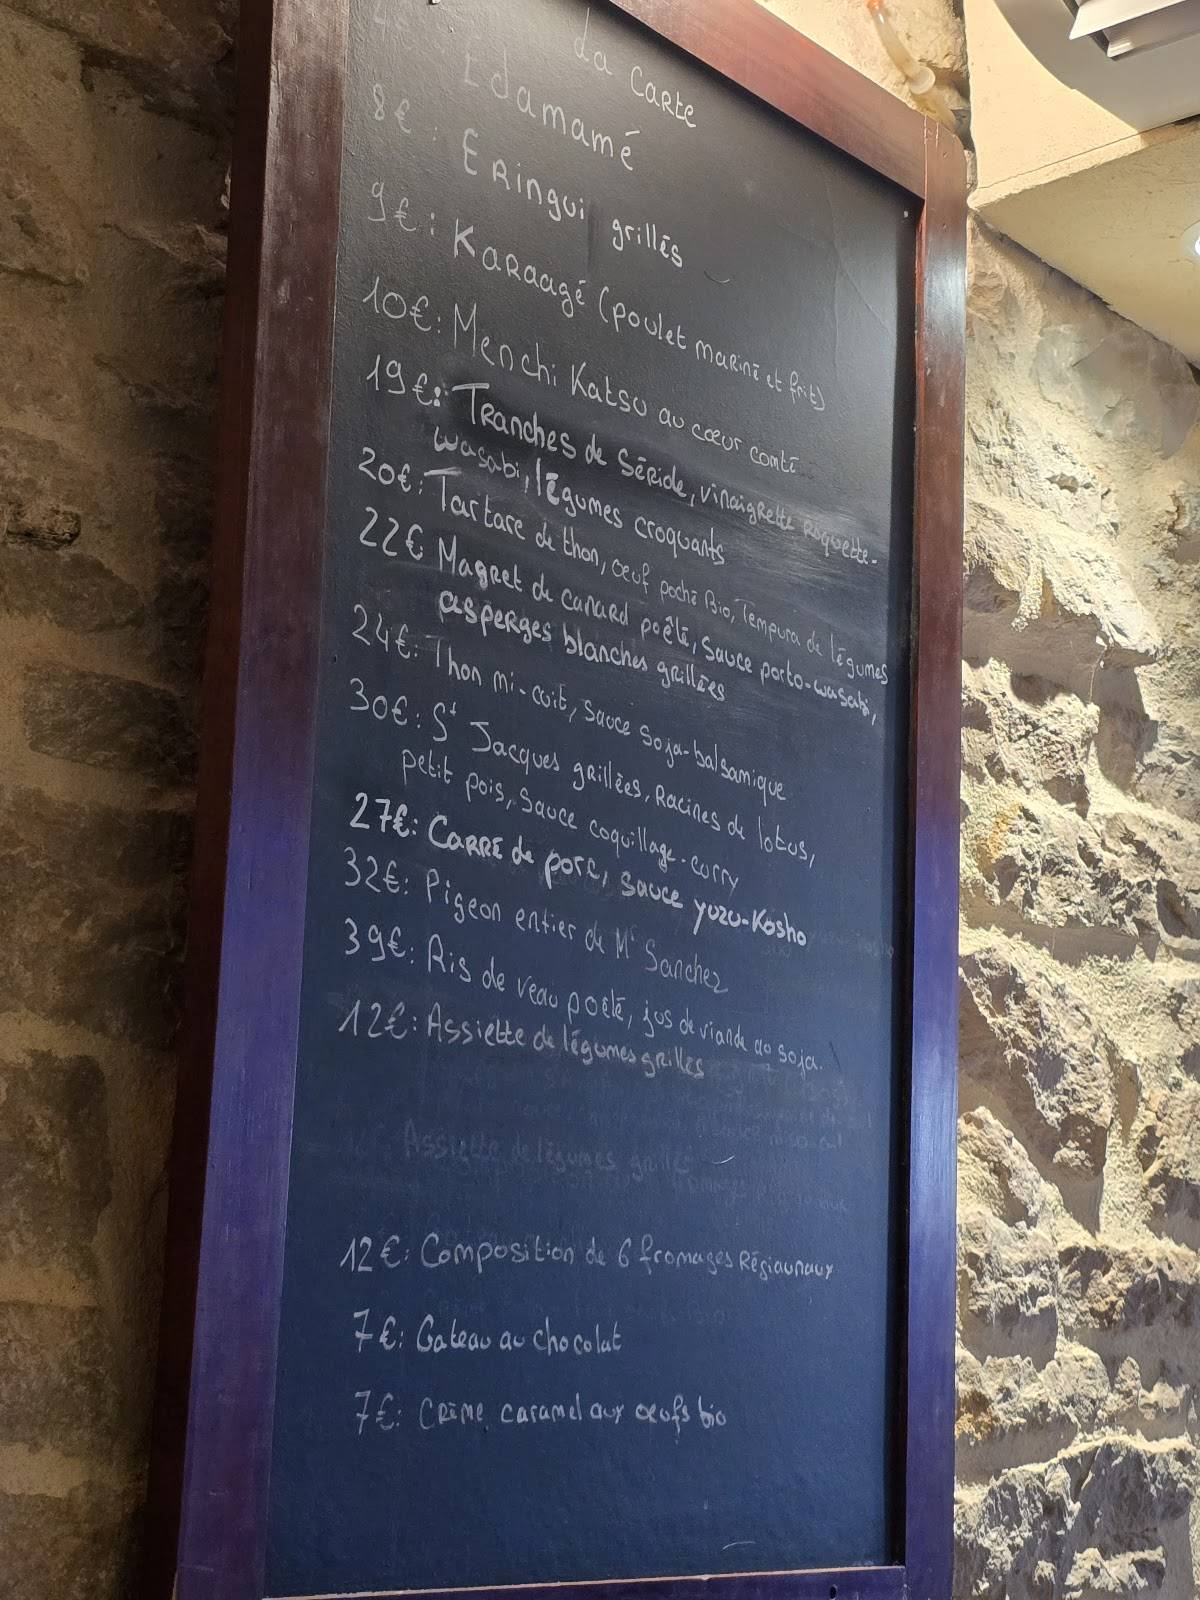 La Carte
4€ Edamamé
8€: Eringui grillés
9€: Karaagé (poulet mariné et frit)
10€: Menchi Katsu au cœur comté
19€: Tranches de Sériole, vinaigrette roquette-
wasabi, légumes croquants
20€: Tartare de thon, œuf poché Bio, Tempura de légumes
22€ Magret de canard poêlé, sauce porto-wasabi,
asperges blanches grillées
24€: Thon mi-cuit, sauce soja-balsamique
30€: St Jacques grillées, Racines de lotus,
petit pois, sauce coquillage-curry
27€: Carré de porc, sauce yuzu-Kosho
32€: Pigeon entier de Mr Sanchez
39€: Ris de veau poêlé, jus de viande au soja.
12€: Assiette de légumes grillés
Assiette de légumes grillés
12€: Composition de 6 fromages Régiaunaux
7€: Gateau au chocolat
7€: Crème caramel aux œufs bio